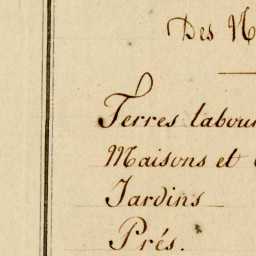 Des N
Terres labour
Maisons et
Jardins
Prés.